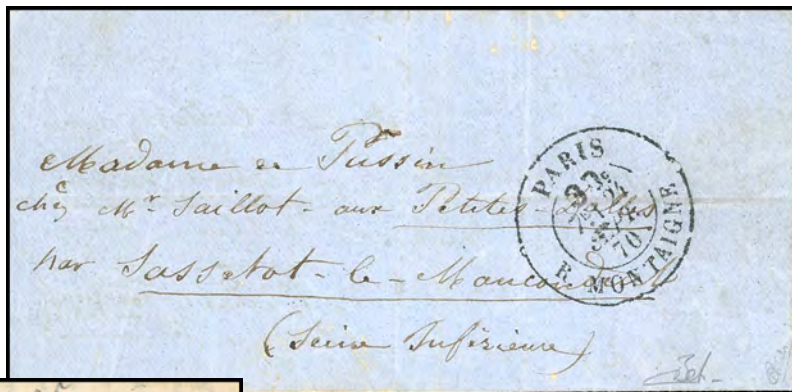 Madame de Pussin
chez Mr Saillot - aux Petites-Dalles
par Sassetot-le-Mauconduit
(Seine Inférieure)
PARIS
R. MONTAIGNE
24
SEPT
70